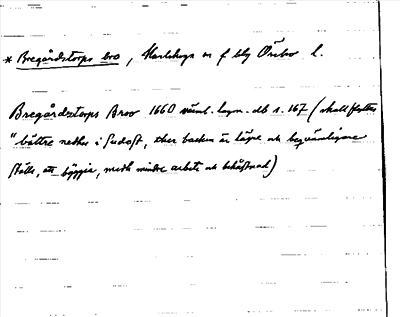 * Bregårdstorps bro, Karlskoga sn f bbg Örebro l.
Bregårdztorps Broo 1660 väml. hpn. db s. 167 (skall flyttas
"bättre nedhre i Sudost, ther backen är lägre och beqvämligare
ställe, att byggia, medh mindre arbete och bekåstnad)